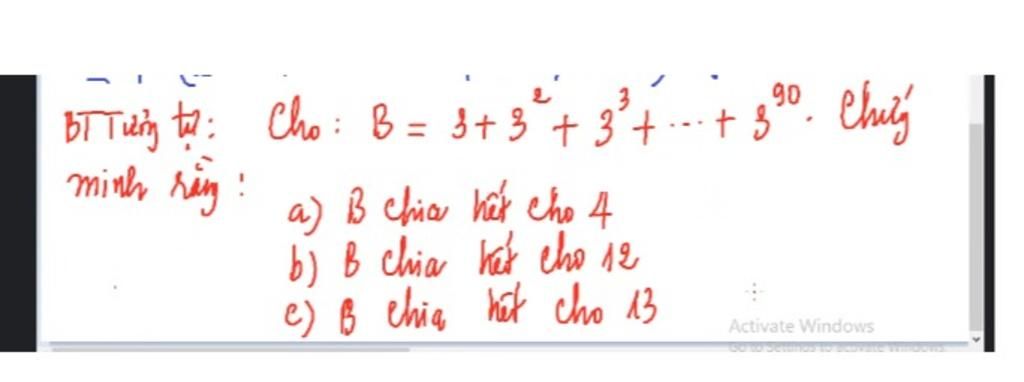 BT Tương tự: Cho: B = 3 + 3² + 3³ + ... + 3⁹⁰. Chứng
minh rằng:
a) B chia hết cho 4
b) B chia hết cho 12
c) B chia hết cho 13
Activate Windows
Go to Settings to activate Windows.